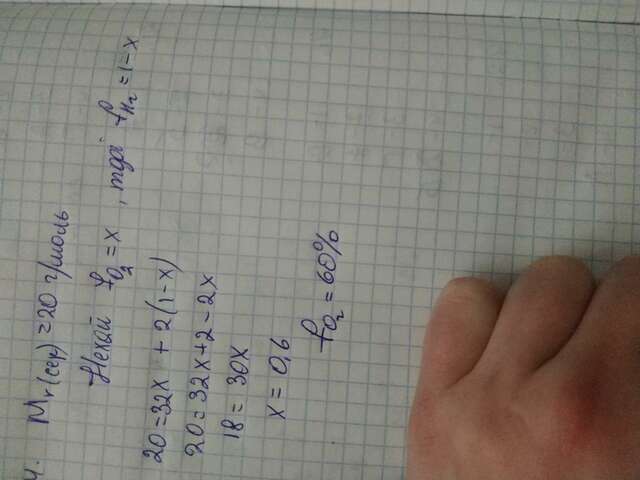 4. Mr(сер) = 20 г/моль
Нехай φO₂ = x, тоді φH₂ = 1-x
20 = 32x + 2(1-x)
20 = 32x + 2 - 2x
18 = 30x
x = 0,6
φO₂ = 60%